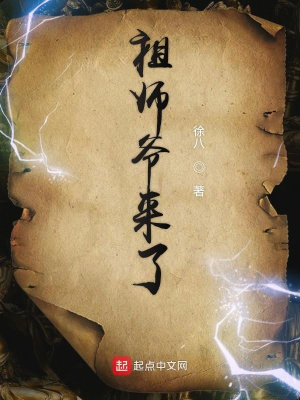 祖师爷来了
徐八◎著
起 起点中文网